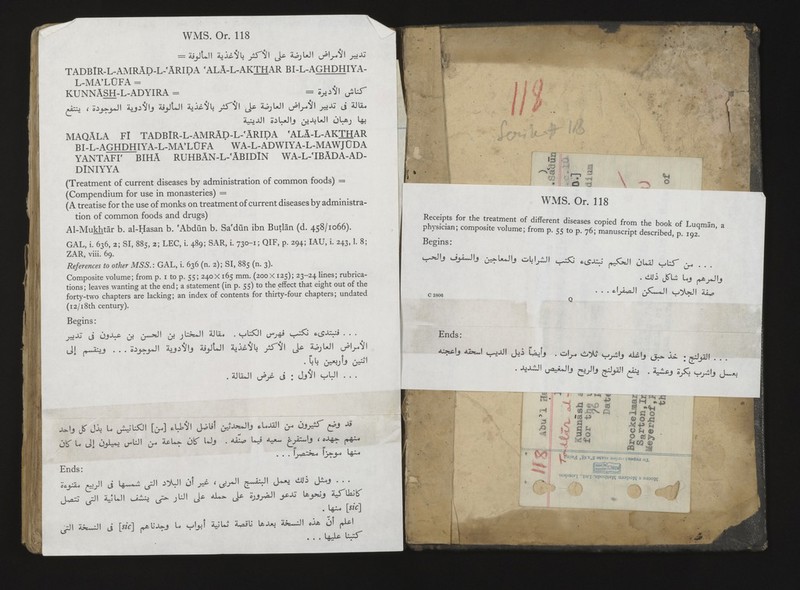 WMS. Or. 118
تدبير الأمراض العارضة على الأكثر بالأغذية المألوفة =
TADBĪR-L-AMRĀḌ-L-'ĀRIḌA 'ALĀ-L-AKTHAR BI-L-AGHDHIYA-
L-MA'LŪFA =
KUNNĀSH-L-ADYIRA = كناش الأديرة =
مقالة فى تدبير الأمراض العارضة على الأكثر بالأغذية المألوفة والأدوية الموجودة ، ينتفع
بها رهبان العابدين والعبادة الدينية
MAQĀLA FĪ TADBĪR-L-AMRĀḌ-L-'ĀRIḌA 'ALĀ-L-AKTHAR
BI-L-AGHDHIYA-L-MA'LŪFA WA-L-ADWIYA-L-MAWJŪDA
YANTAFI' BIHĀ RUHBĀN-L-'ĀBIDĪN WA-L-'IBĀDA-AD-
DĪNIYYA
(Treatment of current diseases by administration of common foods) =
(Compendium for use in monasteries) =
(A treatise for the use of monks on treatment of current diseases by administra-
tion of common foods and drugs)
Al-Mukhtār b. al-Ḥasan b. 'Abdūn b. Sa'dūn ibn Buṭlān (d. 458/1066).
GAL, i. 636, 2; SI, 885, 2; LEC, i. 489; SAR, i. 730-1; QIF, p. 294; IAU, i. 243, l. 8;
ZAR, viii. 69.
References to other MSS.: GAL, i. 636 (n. 2); SI, 885 (n. 3).
Composite volume; from p. 1 to p. 55; 240 × 165 mm. (200 × 125); 23-24 lines; rubrica-
tions; leaves wanting at the end; a statement (in p. 55) to the effect that eight out of the
forty-two chapters are lacking; an index of contents for thirty-four chapters; undated
(12/18th century).
Begins:
... فنبتدىء نكتب فهرس الكتاب . مقالة المختار بن الحسن بن عبدون فى تدبير
الأمراض العارضة على الأكثر بالأغذية المألوفة والأدوية الموجودة ... وينقسم إلى
اثنين وأربعين باباً .
... الباب الأول : فى غرض المقالة .
قد وضع كثيرون من القدماء والمحدثين أفاضل الأطباء [من] الكنانيش ما بذل كل واحد
منهم جهده ، واستفرغ سعيه فيما صنّفه . ولما كان جماعة من الناس يميلون إلى ما كان
منها موجزاً مختصراً ...
Ends:
... ومثل ذلك يعمل البنفسج المربى ، غير أن البلاد التى شمسها فى الربيع مفتوحة
كانطاكية ونحوها تدعو الضرورة على حمله على النار حتى ينشف المائية التى تتصل
[sic] منها .
اعلم أنّ هذه النسخة بعدها ناقصة ثمانية أبواب ما وجدناهم [sic] فى النسخة التى
كتبنا عليها ...
118
WMS. Or. 118
Receipts for the treatment of different diseases copied from the book of Luqmān, a
physician; composite volume; from p. 55 to p. 76; manuscript described, p. 192.
Begins:
... من كتاب لقمان الحكيم نبتدىء نكتب الشرابات والمعاجين والسفوف والحب
والمرهم وما شاكل ذلك .
صفة الجلاب المسكن الصفراء ...
C 2906
Q
Ends:
... القولنج : خذ حبق واغله واشرب ثلاث مرات . وأيضاً ذبل الديب اسحقه واعجنه
بعسل واشرب بكرة وعشية . ينفع القولنج والريح والمغيص الشديد .
118
Abu'l Ha
Kunnāsh
for the
76
Date
Brockelmar
Sarton, In
Meyerhof,
th